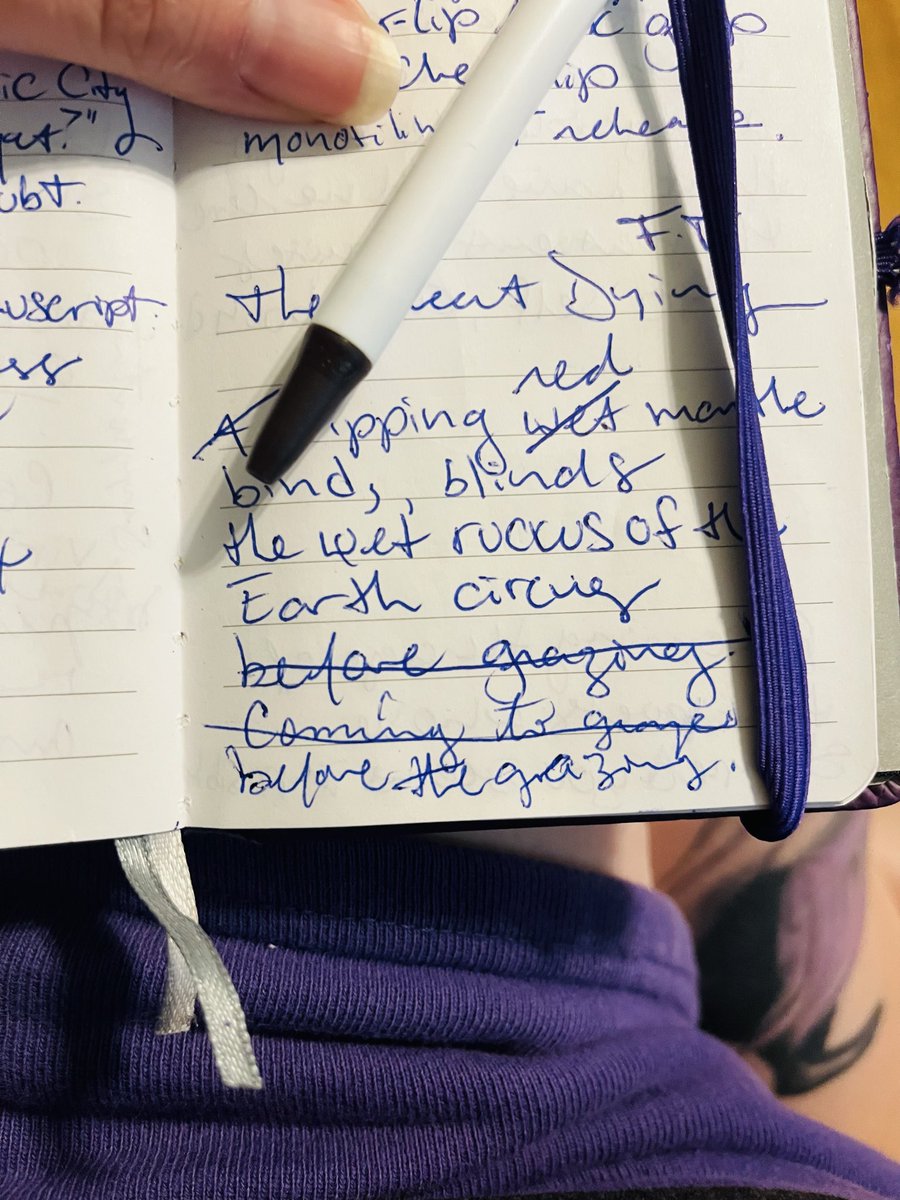 ic City
?"
ubt.
uscript.
ss
Flip
monotilin
F.T
the eat Dying
red
A ipping wet mantle
bind, , blinds
the wet rucous of the
Earth circus
before grazing.
Coming to
before the grazing.